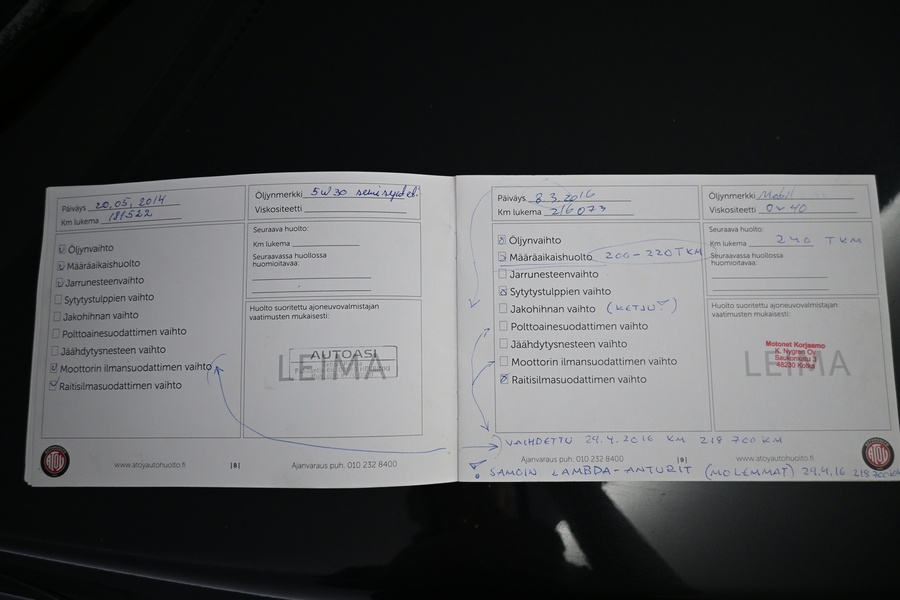 Päiväys 20.05.2014
Km lukema 181522
Öljynmerkki 5W30
Viskositeetti
Öljynvaihto
Määräaikaishuolto
Jarrunesteenvaihto
Sytytystulppien vaihto
Jakohihnan vaihto
Polttoainesuodattimen vaihto
Jäähdytysnesteen vaihto
Moottorin ilmansuodattimen vaihto
Raitisilmasuodattimen vaihto
Seuraava huolto:
Km lukema
Seuraavassa huollossa
huomioitavaa:
Huolto suoritettu ajoneuvovalmistajan
vaatimusten mukaisesti:
LEIMA
AUTOASI
ATOY
www.atoyautohuolto.fi
|8|
Ajanvaraus puh. 010 232 8400
Päiväys 8.3.2016
Km lukema 216073
Öljynmerkki Mobil
Viskositeetti 0W40
Öljynvaihto
Määräaikaishuolto 200-220TKM
Jarrunesteenvaihto
Sytytystulppien vaihto
Jakohihnan vaihto (KETJU)
Polttoainesuodattimen vaihto
Jäähdytysnesteen vaihto
Moottorin ilmansuodattimen vaihto
Raitisilmasuodattimen vaihto
Seuraava huolto:
Km lukema 240 TKM
Seuraavassa huollossa
huomioitavaa:
Huolto suoritettu ajoneuvovalmistajan
vaatimusten mukaisesti:
LEIMA
Motonet Korjaamo
K. Nygren Oy
VAIHDETTU 29.4.2016 KM 218 700 KM
Ajanvaraus puh. 010 232 8400
|9|
www.atoyautohuolto.fi
ATOY
SAMOIN LAMBDA-ANTURIT (MOLEMMAT) 29.4.16 218 700KM